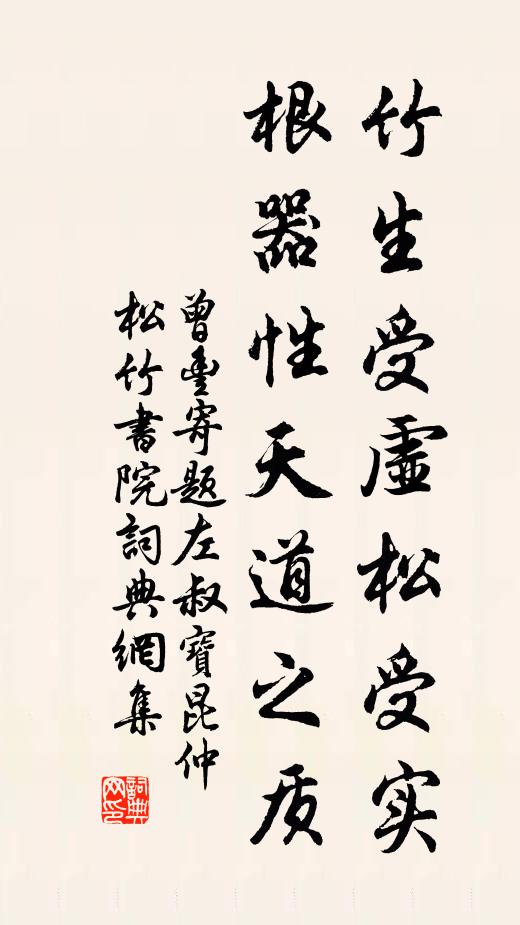 竹生受虛松受实
根器性天道之质
曾豐寄題左叔寶昆仲
松竹書院詞典網集
詞典
网印